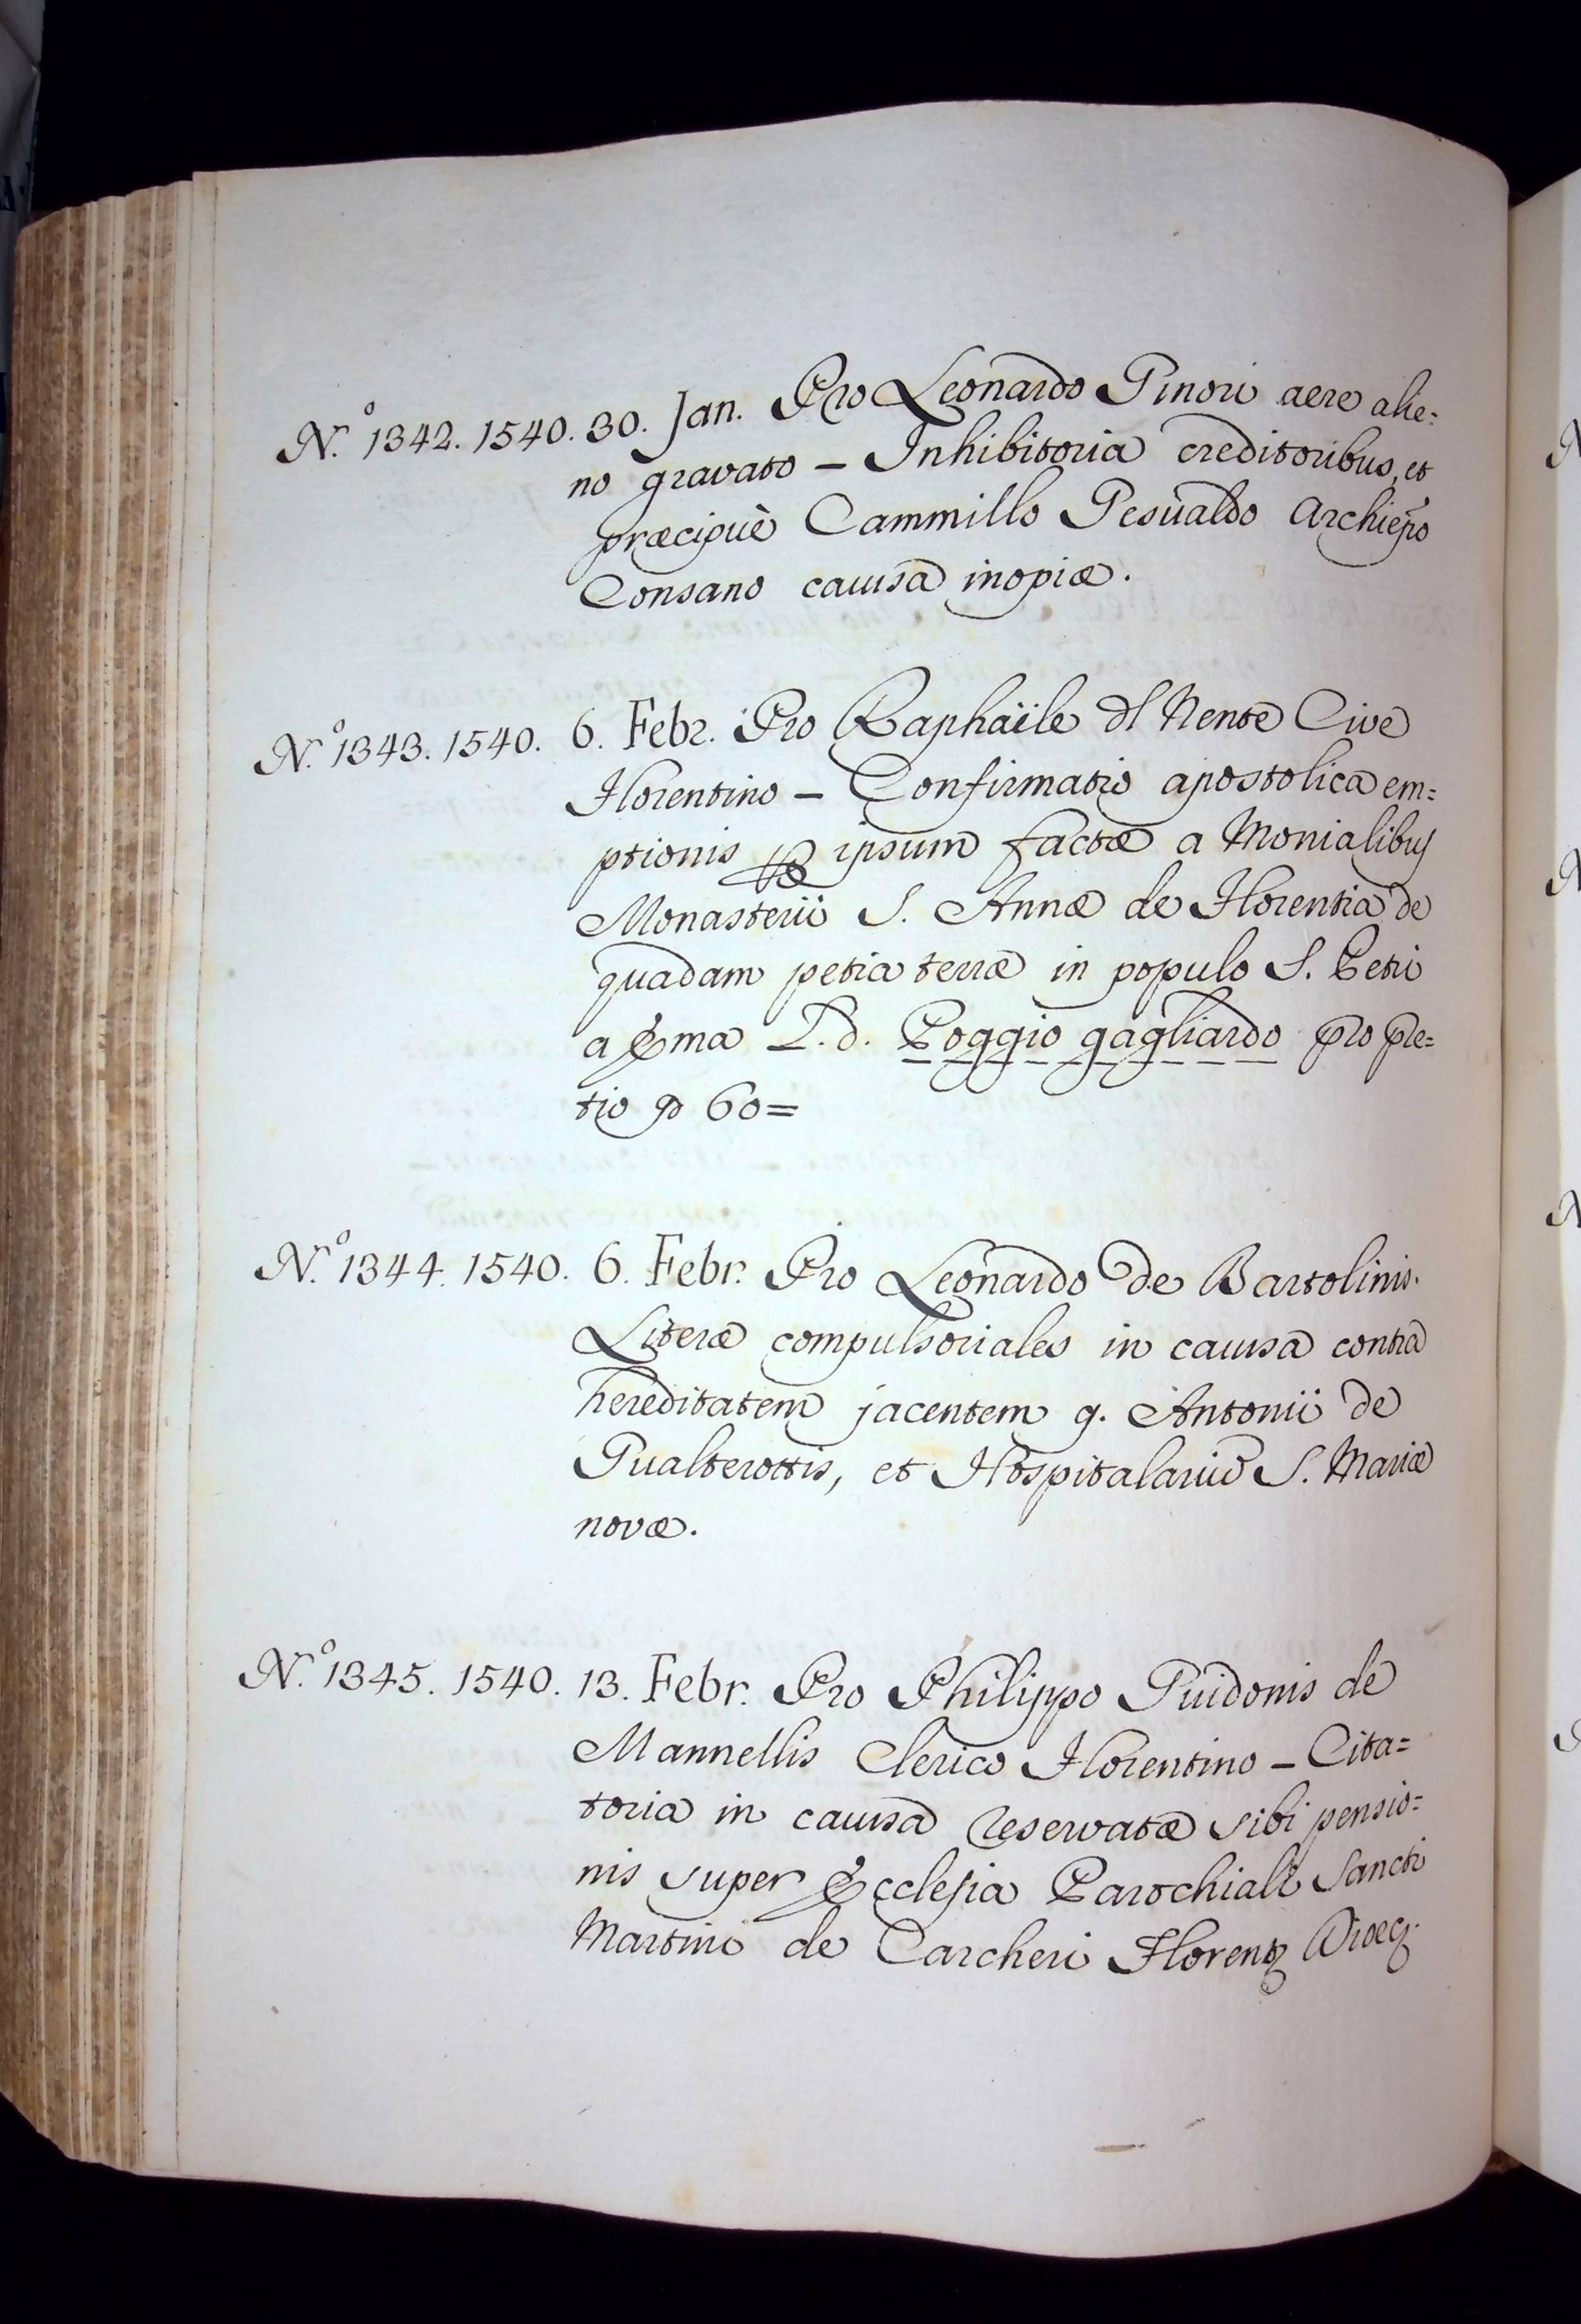 N.º 1342. 1540. 30. Jan. Pro Leonardo Ginori aere alie=
no gravato – Inhibitoria creditoribus, et
præcipuè Cammillo Gesualdo Archiepo
Consano causa inopiæ.
N.º 1343. 1540. 6. Febr. Pro Raphaële del Nente Cive
Florentino – Confirmatio apostolica em=
ptionis per ipsum factæ a Monialibus
Monasterii S. Annæ de Florentia de
quadam petia terræ in populo S. Petri
a Ema L. d. Poggio gagliardo pro pre=
tio 60=
N.º 1344. 1540. 6. Febr. Pro Leonardo de Bartolinis.
Literæ compulsoriales in causa contra
hereditatem jacentem q. Antonii de
Gualterottis, et Hospitalariũ S. Mariæ
novæ.
N.º 1345. 1540. 13. Febr. Pro Philippo Guidonis de
Mannellis Clerico Florentino – Cita=
toria in causa reservatæ sibi pensio=
nis super Ecclesia Parochiali Sancti
Martini de Carcheri Florent Dioec.